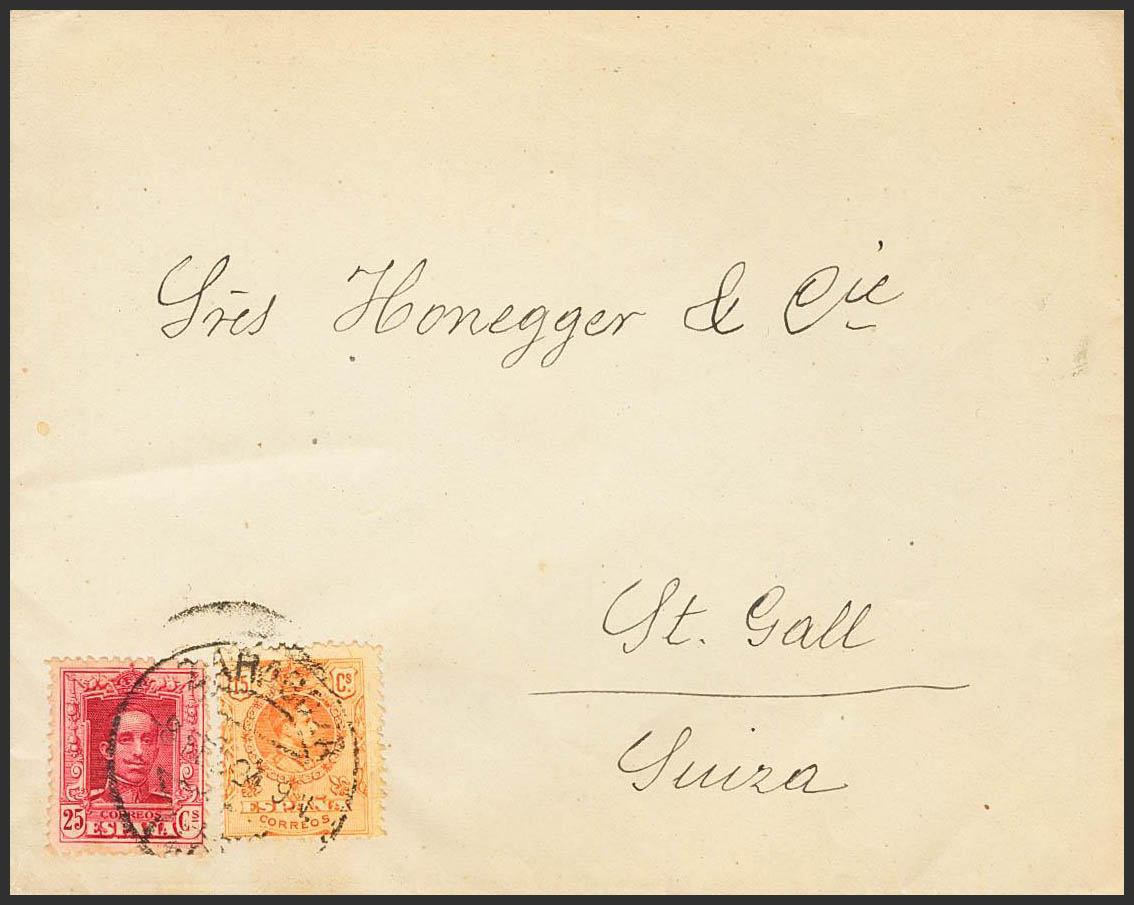 Srēs Honegger & Cie
St. Gall
Suiza
ZARAGOZA
25 Cs
CORREOS
ESPAÑA
15 Cs.
ESPAÑA
CORREOS